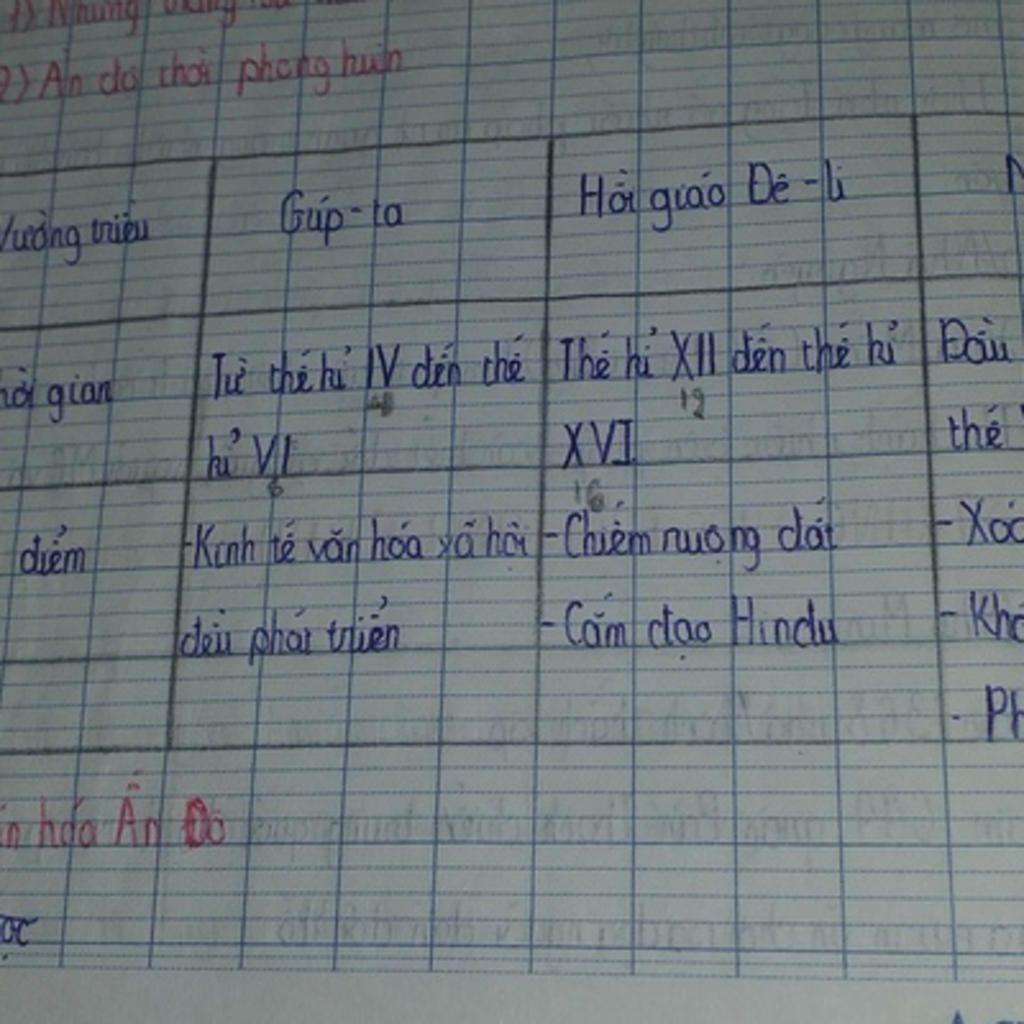 1) Những
2) Ấn độ thời phong kiến
Vương triều
Gúp-ta
Hồi giáo Đê-li
hời gian
Từ thế kỉ IV đến thế
4
kỉ VI
6
Thế kỉ XII đến thế kỉ
12
XVI
16
Đầu
thế
điểm
-Kinh tế văn hóa xã hội
đều phát triển
-Chiếm ruộng đất
-Cấm đạo Hindu
-
-
- Ph
n hóa Ấn Độ
ọc